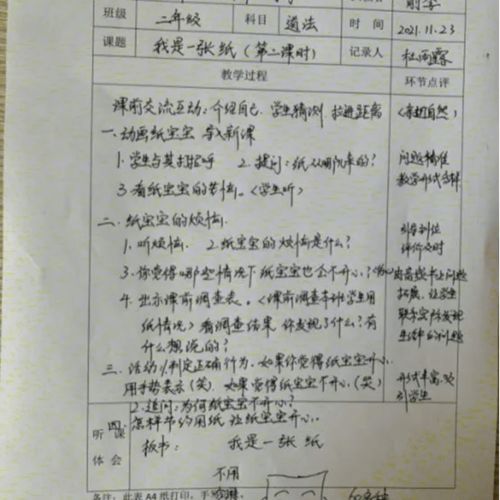 班级 二年级 科目 道法 时间 2021.11.23
课题 我是一张纸（第二课时） 记录人
教学过程 环节点评
课前交流互动：介绍自己 学生猜测 拉进距离 （亲切自然）
一、动画纸宝宝 导入新课
1.学生与其打招呼 2.提问：纸从哪儿来的？ 问题精准
3.看纸宝宝的苦恼。（学生听） 教学形式多样
二、纸宝宝的烦恼
1.听烦恼 2.纸宝宝的烦恼是什么？ 引导到位
评价及时
3.你觉得哪些情况下纸宝宝也会不开心？ 书上问题
4.出示课前调查表。（课前调查本班学生用 拓展，让学生
纸情况）看调查结果 你发现了什么？有 联系实际发现
什么想说的？ 生活中的问题
三、活动 1.判定正确行为。如果你觉得纸宝宝开心
用手势表示（笑） 如果觉得纸宝宝不开心（哭） 形式丰富，吸
2.追问：为何纸宝宝不开心？ 引学生
四、怎样节约用纸 让纸宝宝开心。
听课体会 板书： 我是一张纸
不用
备注：此表A4纸打印，手